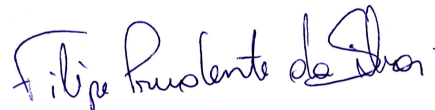 Filipe Prudente da Silva